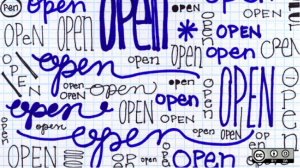 pen
open
OPEN
OPEN
OPEN
OPEN
open
OPEN
OPEN
open
OPEN
open
open
open
open
OPEN
open
open
OPEN
open
OPEN
OPEN
open
open
open
OPEN
open
open
OPEN
open
OPEN
OPEN